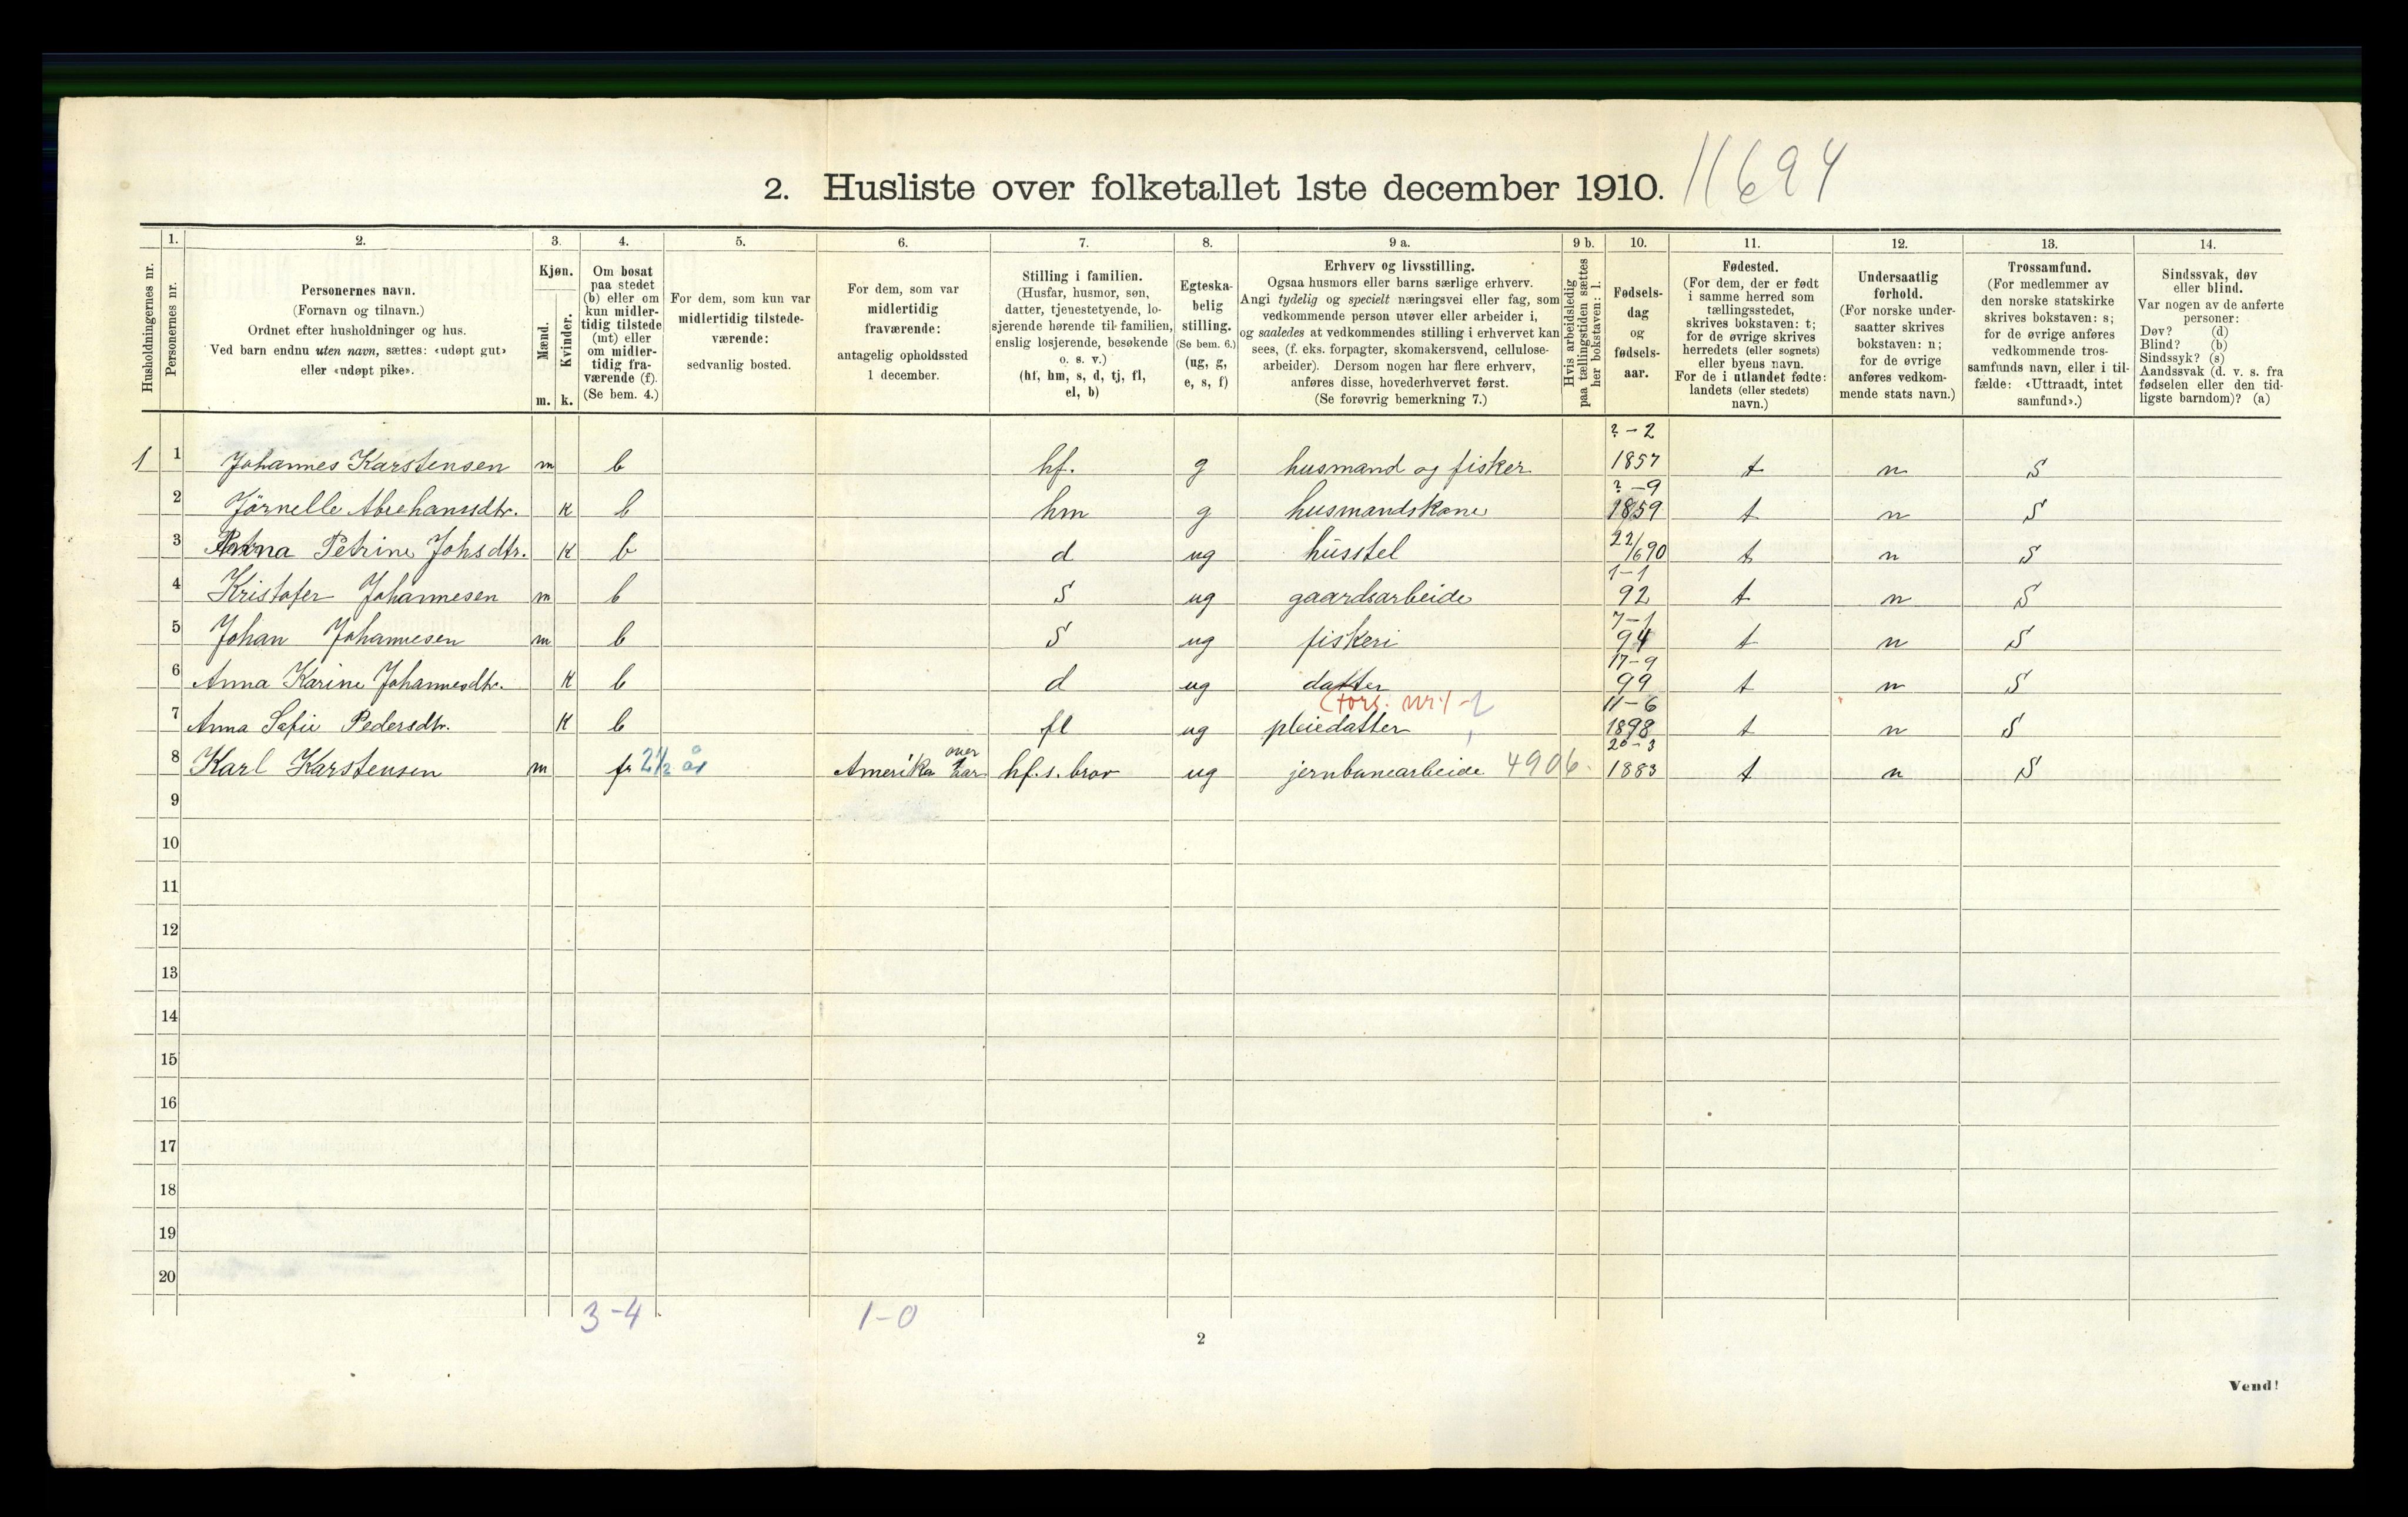 2. Husliste over folketallet 1ste december 1910. 11694
Husholdningernes nr.
1. Personernes nr.
2. Personernes navn. (Fornavn og tilnavn.) Ordnet efter husholdninger og hus. Ved barn endnu uten navn, sættes: «udøpt gut» eller «udøpt pike».
3. Kjøn. Mænd. m. Kvinder. k.
4. Om bosat paa stedet (b) eller om kun midlertidig tilstede (mt) eller om midlertidig fraværende (f). (Se bem. 4.)
5. For dem, som kun var midlertidig tilstedeværende: sedvanlig bosted.
6. For dem, som var midlertidig fraværende: antagelig opholdssted 1 december.
7. Stilling i familien. (Husfar, husmor, søn, datter, tjenestetyende, losjerende hørende til familien, enslig losjerende, besøkende o. s. v.) (hf, hm, s, d, tj, fl, el, b)
8. Egteskabelig stilling. (Se bem. 6.) (ug, g, e, s, f)
9 a. Erhverv og livsstilling. Ogsaa husmors eller barns særlige erhverv. Angi tydelig og specielt næringsvei eller fag, som vedkommende person utøver eller arbeider i, og saaledes at vedkommendes stilling i erhvervet kan sees, (f. eks. forpagter, skomakersvend, cellulosearbeider). Dersom nogen har flere erhverv, anføres disse, hovederhvervet først. (Se forøvrig bemerkning 7.)
9 b. Hvis arbeidsledig paa tællingstiden sættes her bokstaven: l.
10. Fødselsdag og fødselsaar.
11. Fødested. (For dem, der er født i samme herred som tællingsstedet, skrives bokstaven: t; for de øvrige skrives herredets (eller sognets) eller byens navn. For de i utlandet fødte: landets (eller stedets) navn.)
12. Undersaatlig forhold. (For norske undersaatter skrives bokstaven: n; for de øvrige anføres vedkommende stats navn.)
13. Trossamfund. (For medlemmer av den norske statskirke skrives bokstaven: s; for de øvrige anføres vedkommende trossamfunds navn, eller i tilfælde: «Uttraadt, intet samfund».)
14. Sindssvak, døv eller blind. Var nogen av de anførte personer: Døv? (d) Blind? (b) Sindssyk? (s) Aandssvak (d. v. s. fra fødselen eller den tidligste barndom)? (a)
1 1 Johannes Karstensen m b hf. g husmand og fisker ?-2 1857 t n S
2 Jörnelle Abrahamsdtr. k b hm g husmandskone ?-9 1859 t n S
3 Anna Petrine Johsdtr. k b d ug husstel 22/6 90 t n S
4 Kristofer Johannesen m b S ug gaardsarbeide 1-1 92 t n S
5 Johan Johannesen m b S ug fiskeri 7-1 94 t n S
6 Anna Karine Johannesdtr. k b d ug datter 17-9 99 t n S
(fors. nr 1
7 Anna Sofie Pedersdtr. k b fl ug pleiedatter 11-6 1898 t n S
8 Karl Karstensen m fr 2 1/2 år Amerika over aar hf.s. bror ug jernbanearbeide 4906. 20-3 1883 t n S
9
10
11
12
13
14
15
16
17
18
19
20
3-4 1-0
2
Vend!